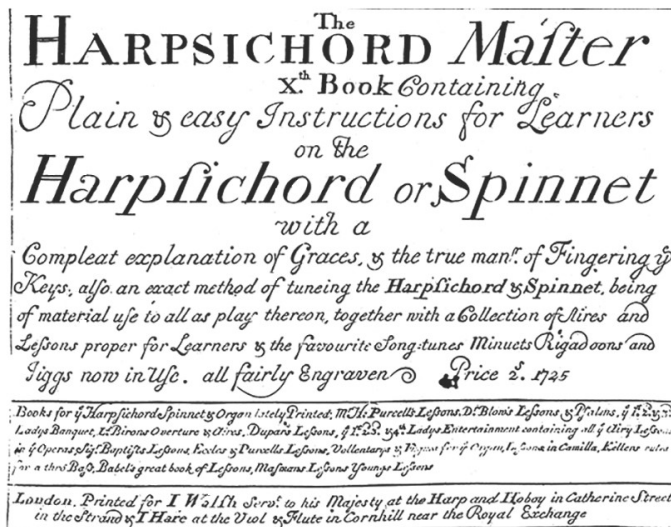 The
HARPSICHORD Maſter
X.th Book Containing
Plain & eaſy Instructions for Learners
on the
Harpſichord or Spinnet
with a
Compleat explanation of Graces, & the true man.r of Fingering ye
Keys, alſo an exact method of tuneing the Harpſichord & Spinnet, being
of material uſe to all as play thereon, together with a Collection of Aires and
Leſsons proper for Learners & the favourite Song-tunes Minuets Rigadoons and
Jiggs now in Uſe. all fairly Engraven Price 2s. 1725
Books for ye Harpſichord Spinnet & Organ lately Printed, Mr. H. Purcells Leſsons, Dr. Blows Leſsons, & Pſalms, ye 1st. 2d. & 3d.
Ladys Banquet, Lt. Birons Overture & Aires, Duparts Leſsons, ye 1st. 2d. 3d. & 4th Ladys Entertainment containing all ye Airy Leſsons
in ye Operas, Sigr. Baptiſts Leſsons, Eccles & Purcells Leſsons, Vollentarys & Fugues for ye Organ, Leſsons in Camilla, Kellers rules
for a thro Baſs, Babels great book of Leſsons, Maſmans Leſsons Youngs Leſsons
London, Printed for I Walſh Servt. to his Majesty at the Harp and Hoboy in Catherine Street
in the Strand & I Hare at the Viol & Flute in Cornhill near the Royal Exchange